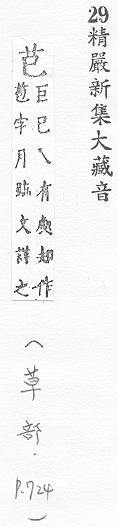 29精嚴新集大藏音
芑
巨已乀有處却作
字月點文謹之
(草部.P.724)